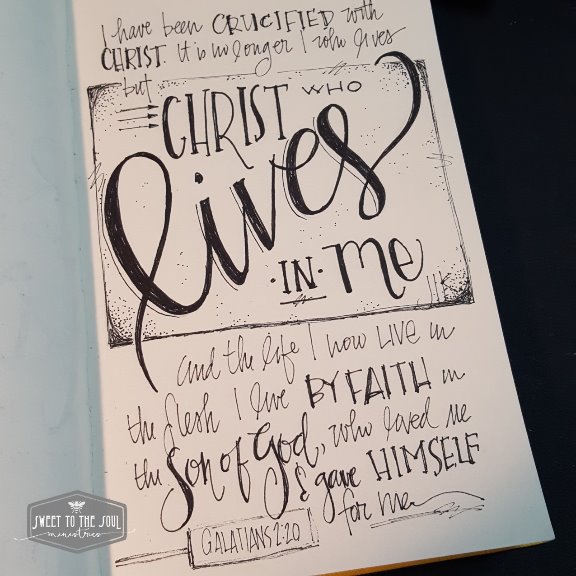 I have been CRUCIFIED with
CHRIST. It is no longer I who lives
but
CHRIST WHO
lives
·IN· me
and the life I now LIVE in
the flesh I live BY FAITH in
the Son of God, who loved me
& gave HIMSELF
for me
GALATIANS 2:20
SWEET TO THE SOUL
ministries